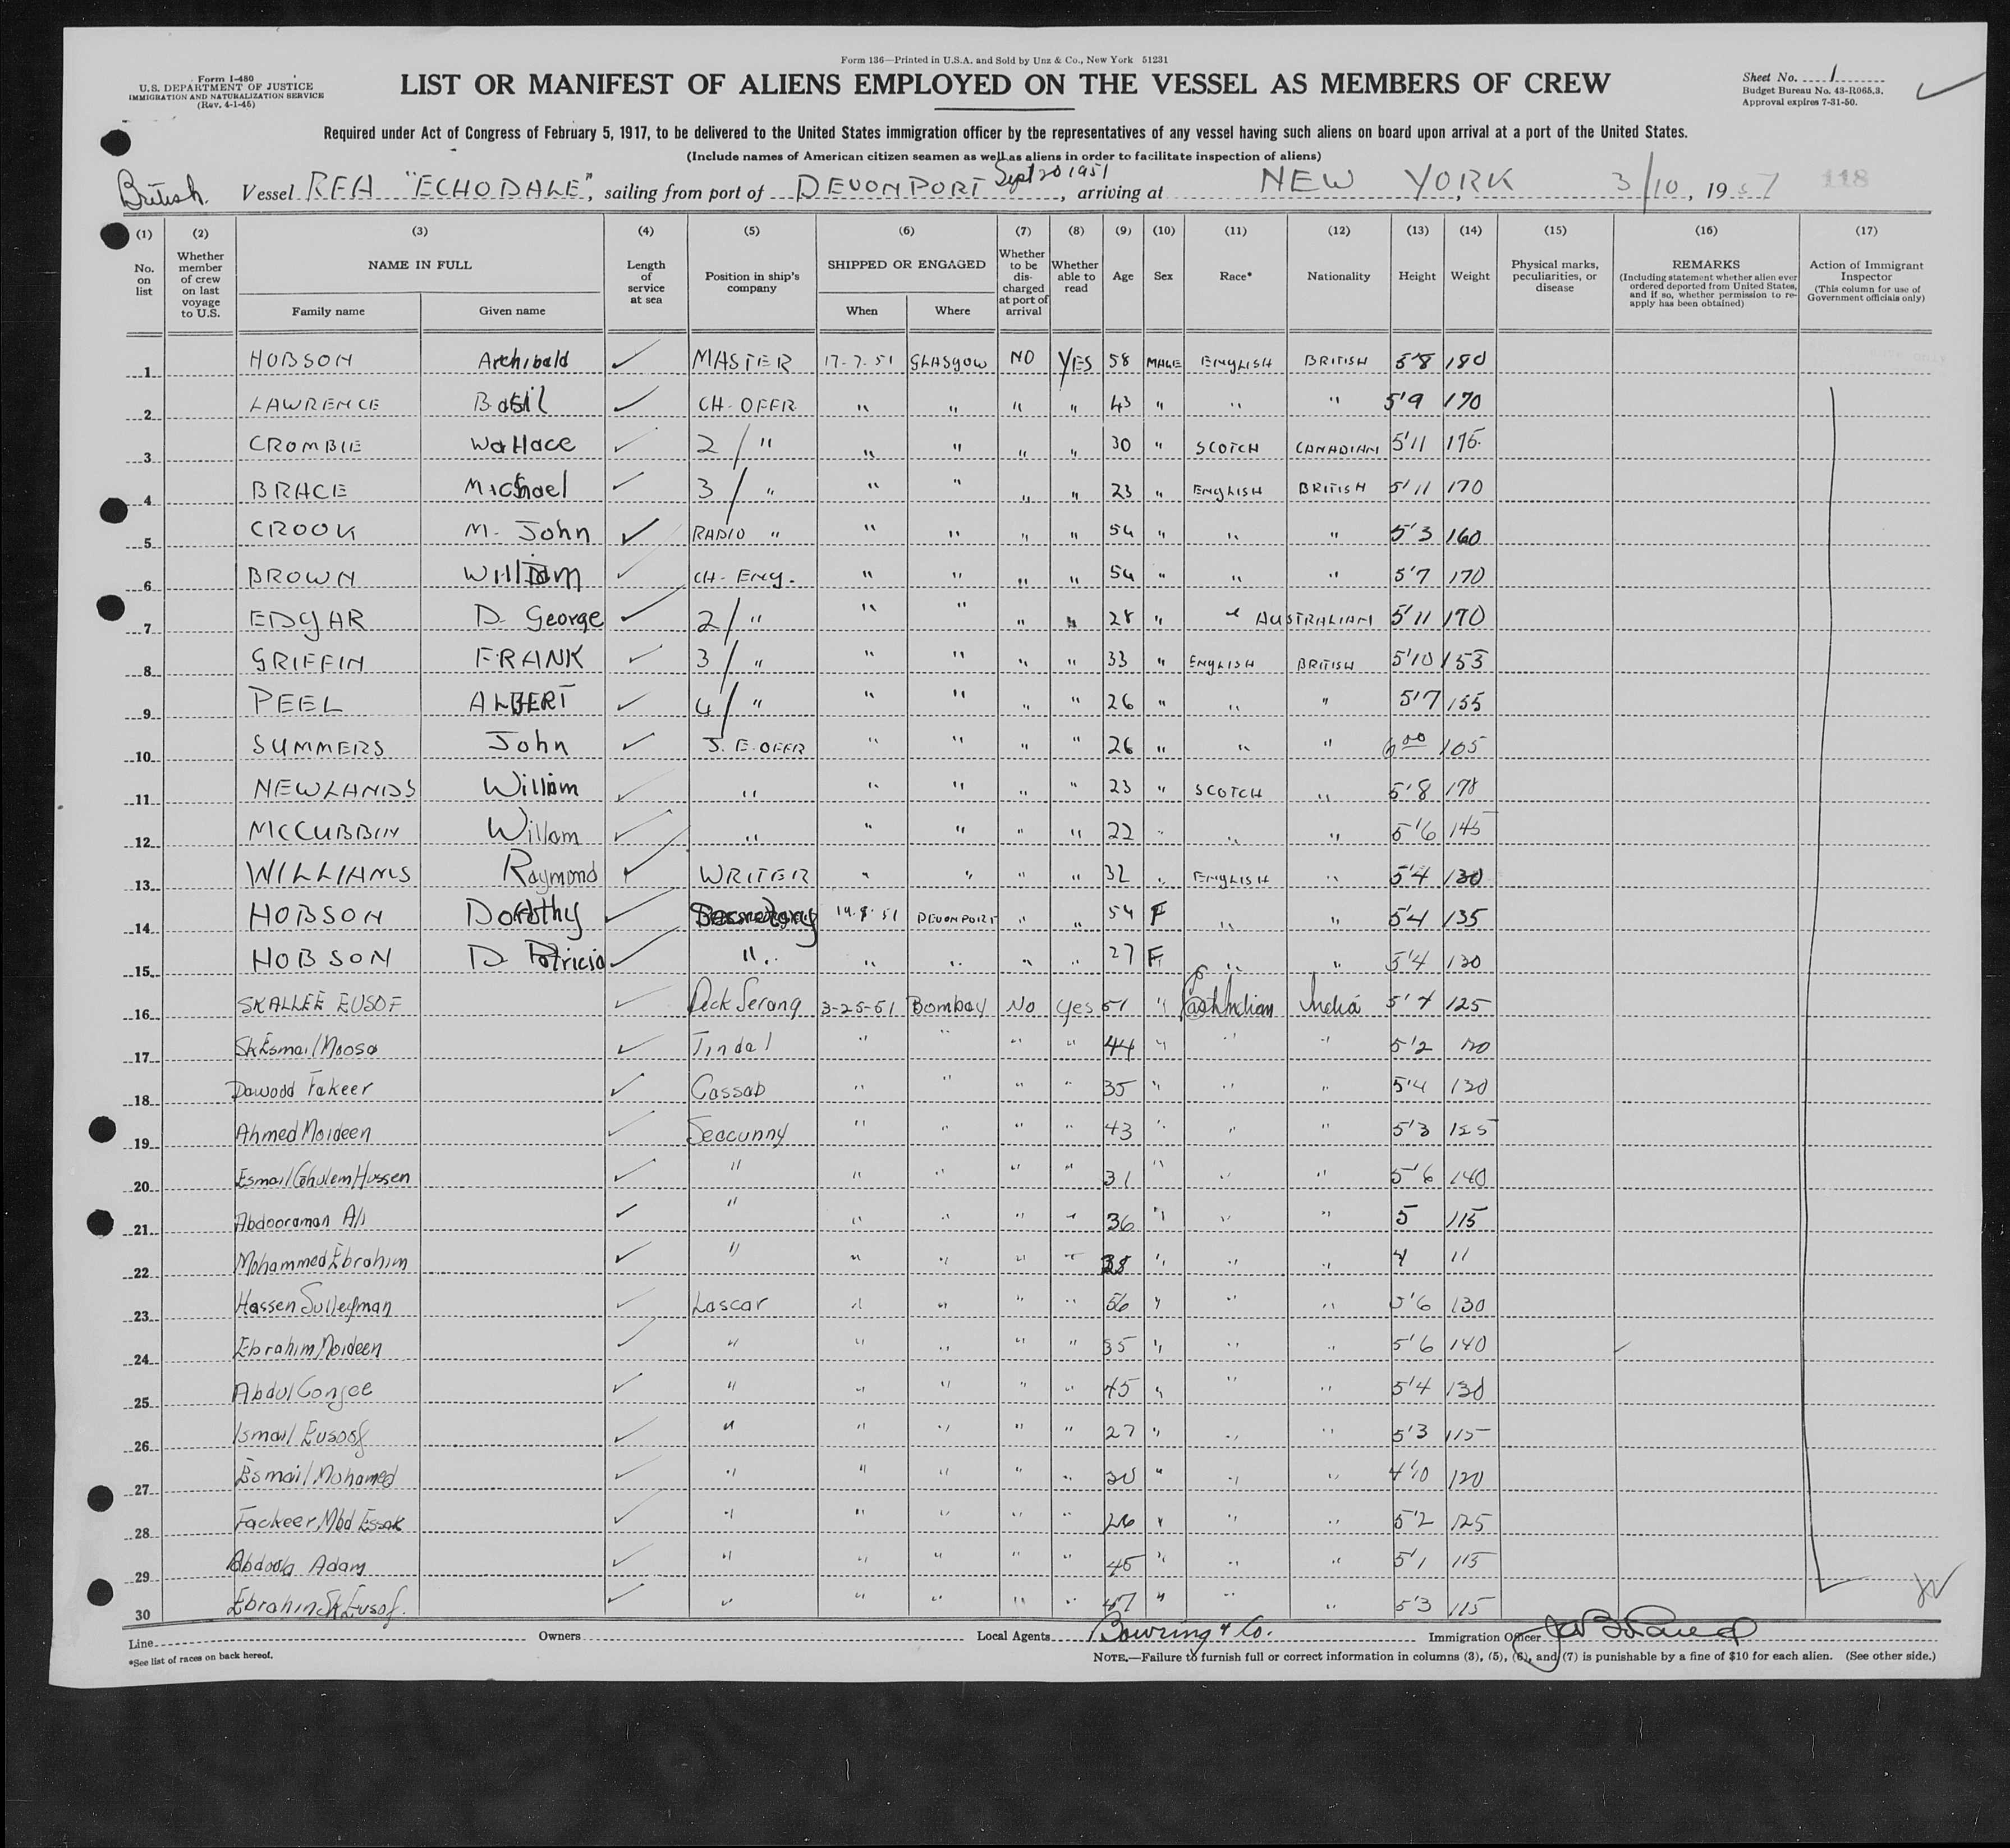 Form 136—Printed in U.S.A. and Sold by Unz & Co., New York 51231
Form I-480
U.S. DEPARTMENT OF JUSTICE
IMMIGRATION AND NATURALIZATION SERVICE
(Rev. 4-1-45)
LIST OR MANIFEST OF ALIENS EMPLOYED ON THE VESSEL AS MEMBERS OF CREW
Sheet No. 1
Budget Bureau No. 43-R065.3.
Approval expires 7-31-50.
Required under Act of Congress of February 5, 1917, to be delivered to the United States immigration officer by the representatives of any vessel having such aliens on board upon arrival at a port of the United States.
(Include names of American citizen seamen as well as aliens in order to facilitate inspection of aliens)
British. Vessel RFA "ECHODALE", sailing from port of DEVONPORT Sept 20 1951, arriving at NEW YORK, 3/10, 1951 118
(1) (2) (3) (4) (5) (6) (7) (8) (9) (10) (11) (12) (13) (14) (15) (16) (17)
No. on list
Whether member of crew on last voyage to U.S.
NAME IN FULL
Family name Given name
Length of service at sea
Position in ship's company
SHIPPED OR ENGAGED
When Where
Whether to be discharged at port of arrival
Whether able to read
Age
Sex
Race*
Nationality
Height
Weight
Physical marks, peculiarities, or disease
REMARKS
(Including statement whether alien ever ordered deported from United States, and if so, whether permission to reapply has been obtained)
Action of Immigrant Inspector
(This column for use of Government officials only)
1 HOBSON Archibald MASTER 17-7-51 GLASGOW NO YES 58 MALE ENGLISH BRITISH 5'8 180
2 LAWRENCE Basil CH-OFFR " " " " 43 " " " 5'9 170
3 CROMBIE Wallace 2/ " " " " " 30 " SCOTCH CANADIAN 5'11 175
4 BRACE Michael 3/ " " " " " 23 " ENGLISH BRITISH 5'11 170
5 CROOK M. John RADIO " " " " " 54 " " " 5'3 160
6 BROWN William CH-ENG. " " " " 54 " " " 5'7 170
7 EDGAR D. George 2/ " " " " " 28 " " AUSTRALIAN 5'11 170
8 GRIFFIN FRANK 3/ " " " " " 33 " ENGLISH BRITISH 5'10 153
9 PEEL ALBERT 4/ " " " " " 26 " " " 5'7 155
10 SUMMERS John J. E. OFFR " " " " 26 " " " 6 00 165
11 NEWLANDS William " " " " " 23 " SCOTCH " 5'8 178
12 MCCUBBIN Willam " " " " " 22 " " " 5'6 145
13 WILLIAMS Raymond WRITER " " " " 32 " ENGLISH " 5'4 130
14 HOBSON Dorothy 19-9-51 DEVONPORT " " 54 F " " 5'4 135
15 HOBSON D Patricia " " " " " 27 F " " 5'4 120
16 SKALLEE EUSOF Deck Serang 3-25-51 Bombay No Yes 51 " East Indian India 5'4 125
17 Sk Esmail Moosa Tindal " " " " 44 " " " 5'2 120
18 Dawood Fakeer Cassab " " " " 35 " " " 5'4 120
19 Ahmed Moideen Seacunny " " " " 43 " " " 5'3 125
20 Esmail Ghulem Hussen " " " " " 31 " " " 5'6 140
21 Abdooraman Ali " " " " " 36 " " " 5 115
22 Mohammed Ebrahim " " " " " 38 " " " 4 11
23 Hassen Sulleyman Lascar " " " " 56 " " " 5'6 130
24 Ebrahim Moideen " " " " " 35 " " " 5'6 140
25 Abdul Gonjee " " " " " 45 " " " 5'4 130
26 Ismail Eusoof " " " " " 27 " " " 5'3 115
27 Esmail Mohamed " " " " " 20 " " " 4'10 120
28 Fackeer Mbd Essak " " " " " 26 " " " 5'2 125
29 Abdoola Adam " " " " " 45 " " " 5'1 115
30 Ebrahim Sk Eusof. " " " " " 47 " " " 5'3 115
Line Owners Local Agents Bowring & Co. Immigration Officer
*See list of races on back hereof.
NOTE.—Failure to furnish full or correct information in columns (3), (5), (6), and (7) is punishable by a fine of $10 for each alien. (See other side.)